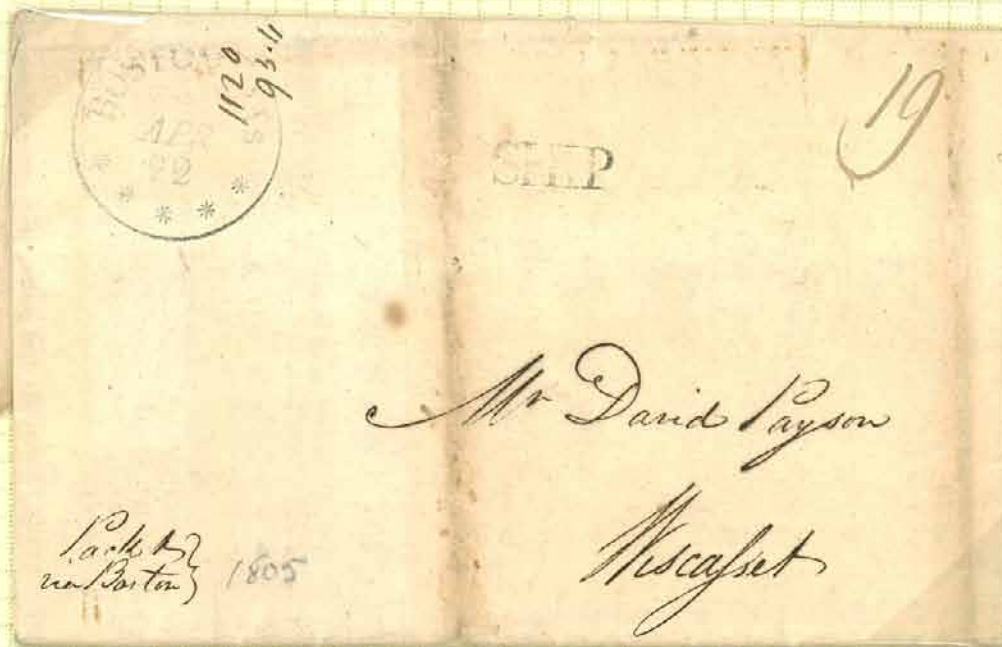 BOSTON MS
APR
22
1120
93.4
SHIP
19
Mr David Payson
Wiscasset
Packet
via Boston
1805